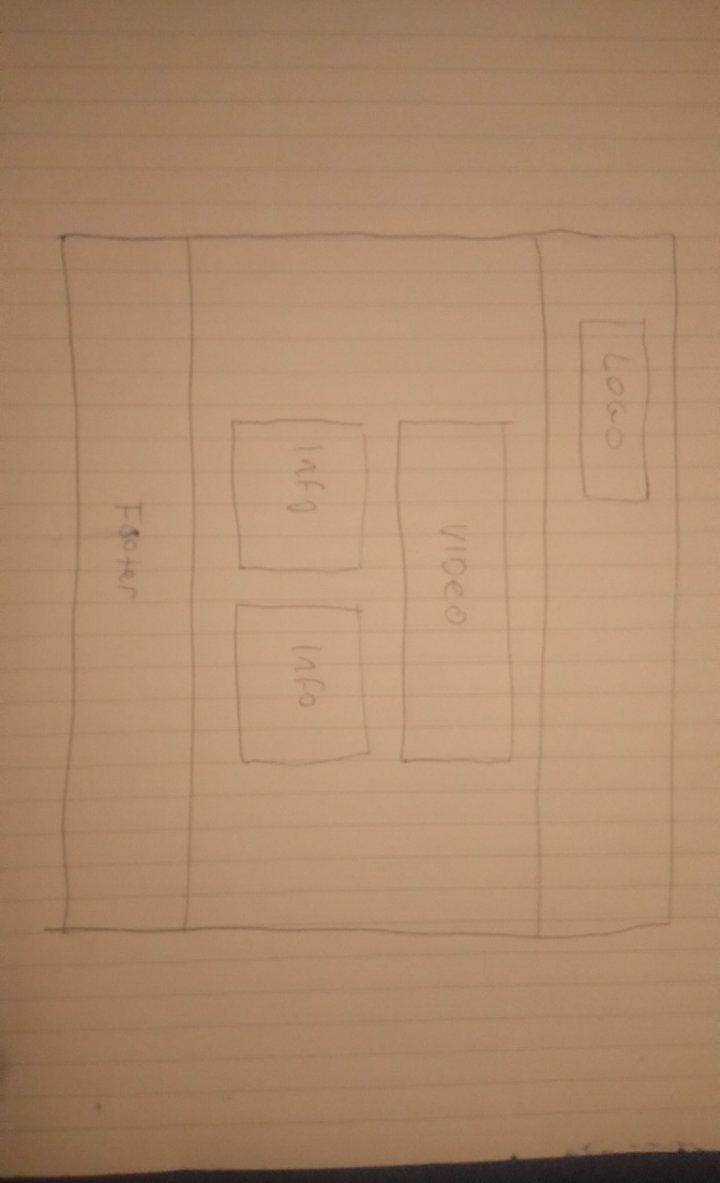 LOGO
VIDEO
Info
Info
Footer